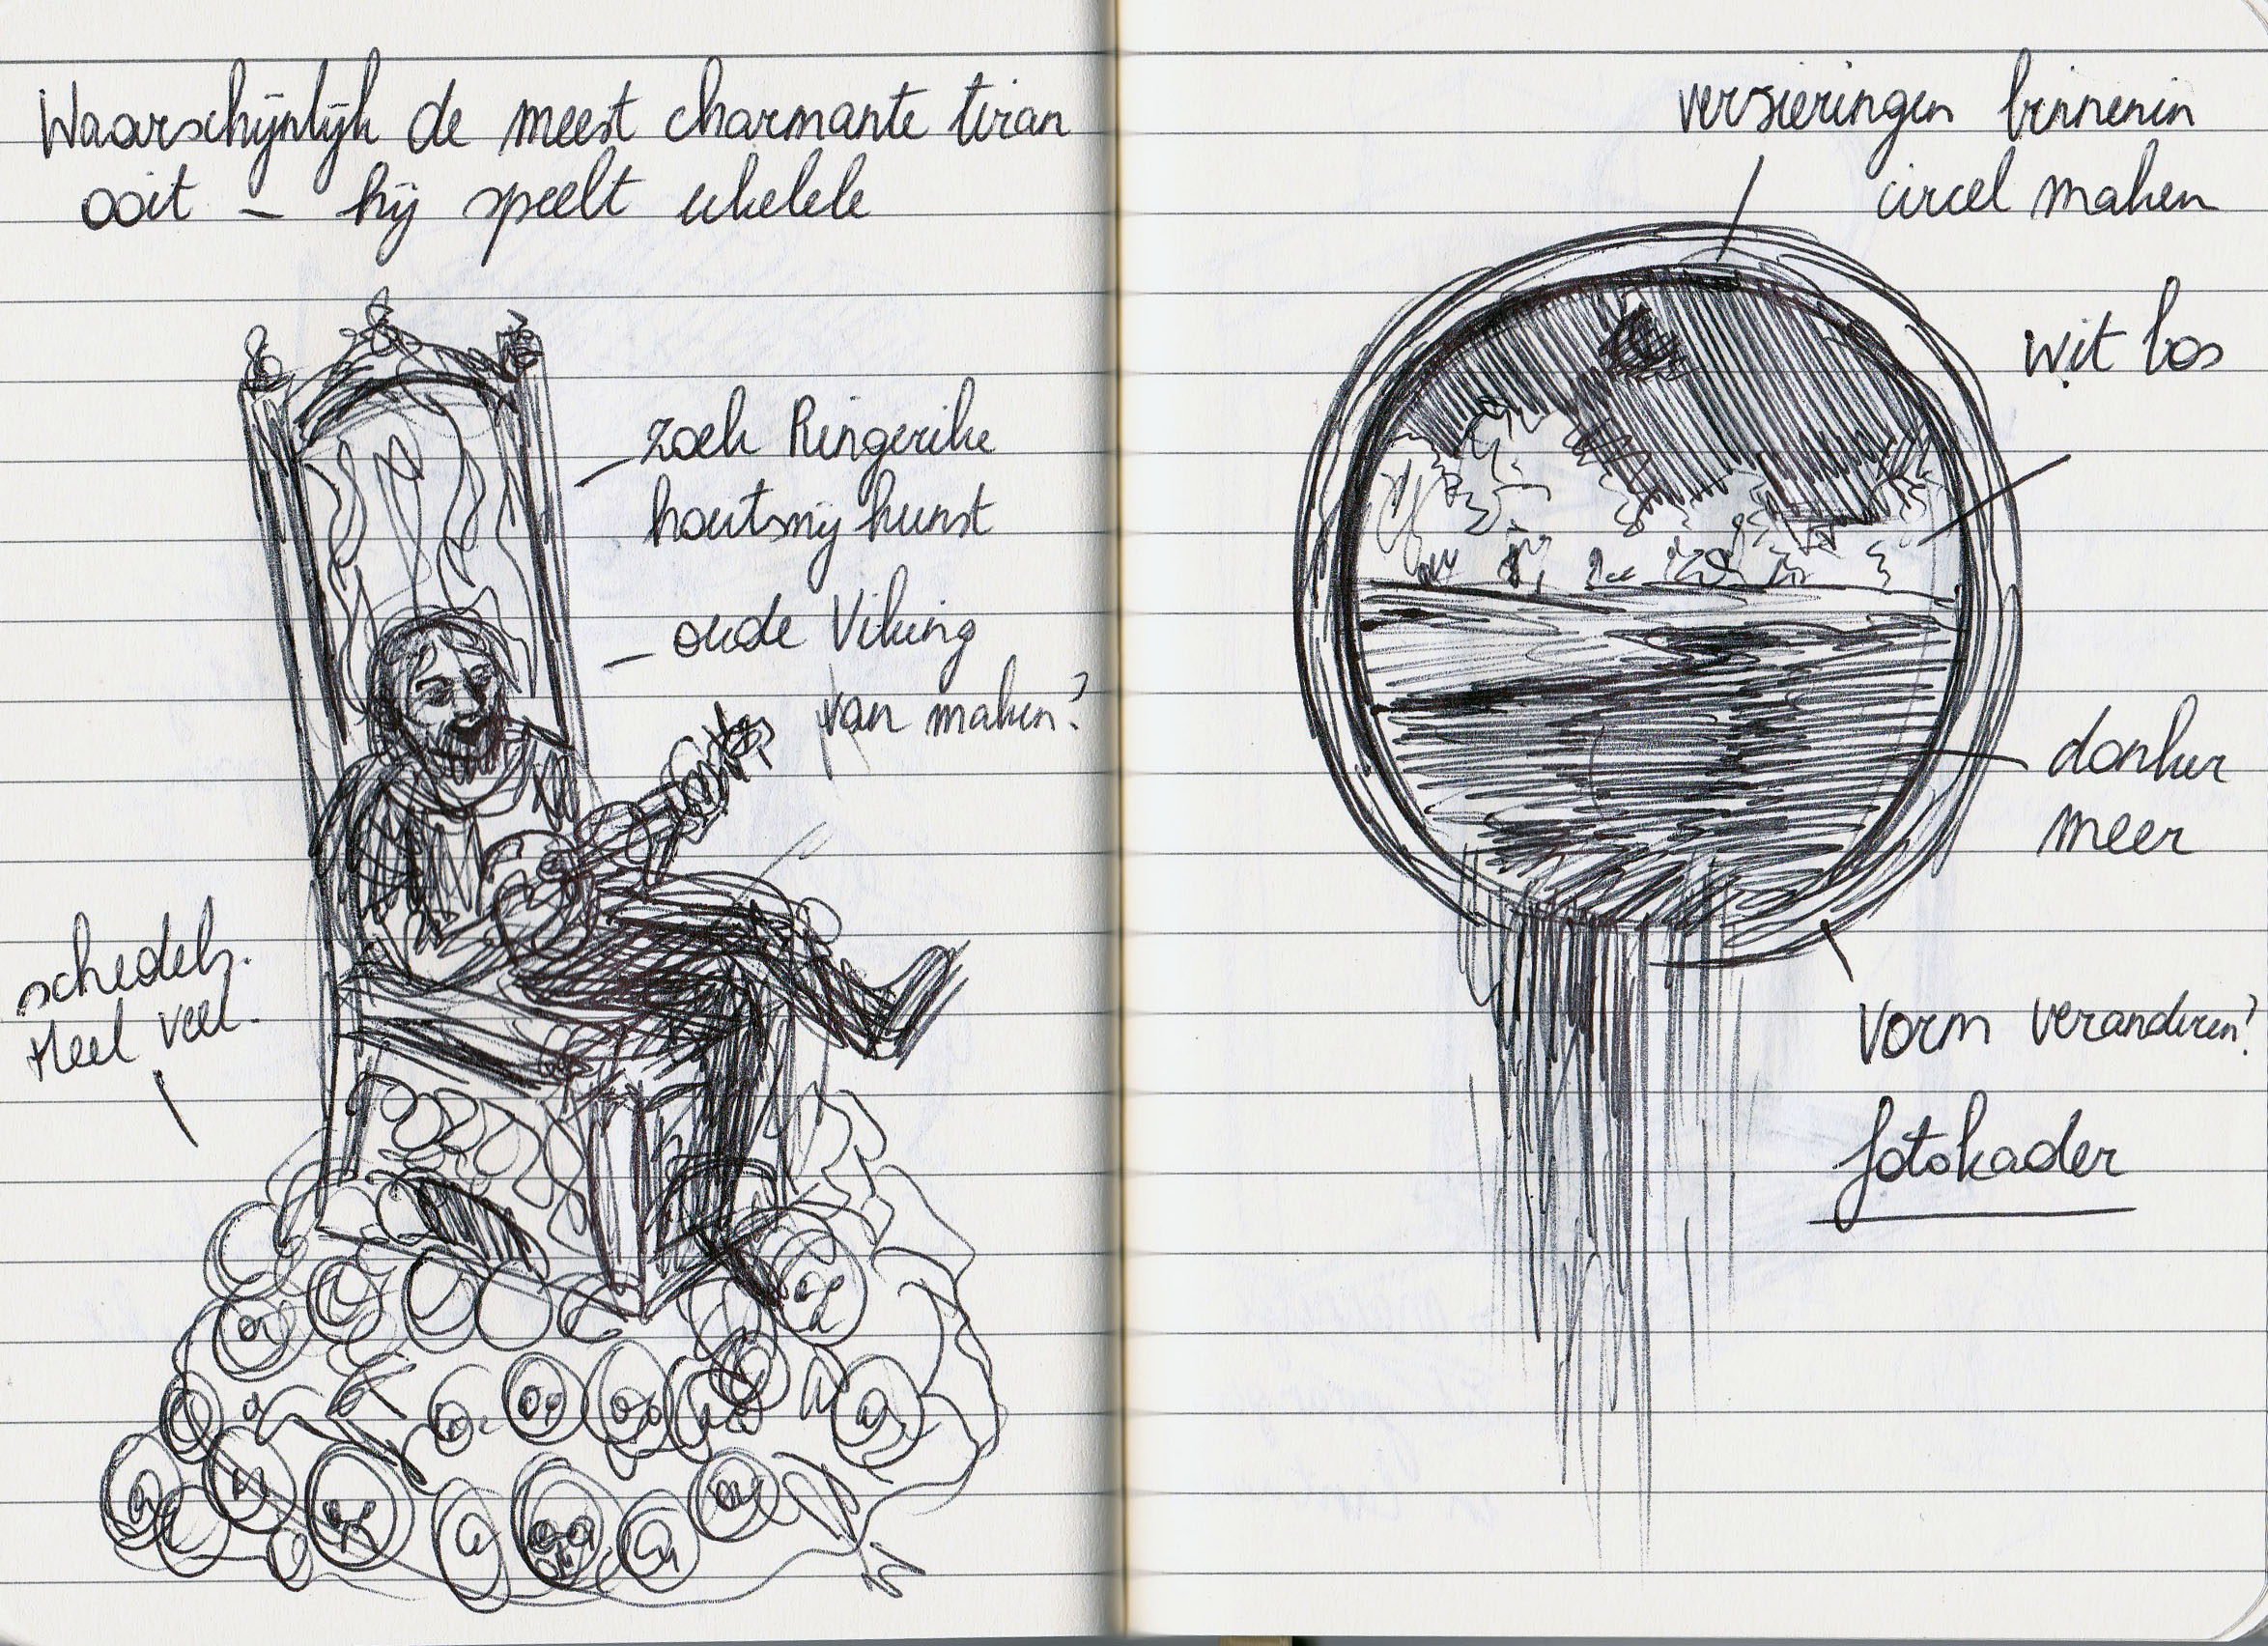 Waarschijnlijk de meest charmante tiran
ooit – hij speelt ukelele
zoek Ringerike
houtsnijkunst
oude Viking
van maken?
schedels.
Heel veel.
versieringen binnenin
circel maken
wit bos
donker
meer
vorm veranderen?
fotokader